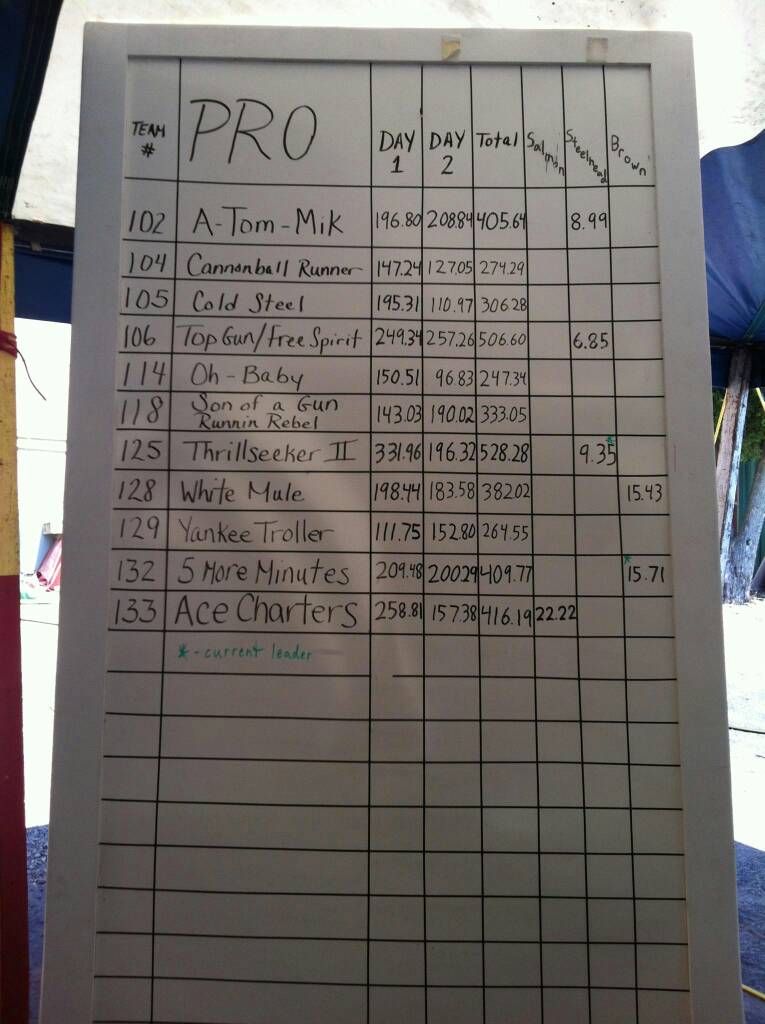 TEAM # PRO DAY 1 DAY 2 Total Salmon Steelhead Brown
102 A-Tom-Mik 196.80 208.84 405.64 8.99
104 Cannonball Runner 147.24 127.05 274.29
105 Cold Steel 195.31 110.97 306.28
106 Top Gun/Free Spirit 249.34 257.26 506.60 6.85
114 Oh-Baby 150.51 96.83 247.34
118 Son of a Gun Runnin Rebel 143.03 190.02 333.05
125 Thrillseeker II 331.96 196.32 528.28 9.35*
128 White Mule 198.44 183.58 382.02 15.43
129 Yankee Troller 111.75 152.80 264.55
132 5 More Minutes 209.48 200.29 409.77 *15.71
133 Ace Charters 258.81 157.38 416.19 22.22
* - current leader